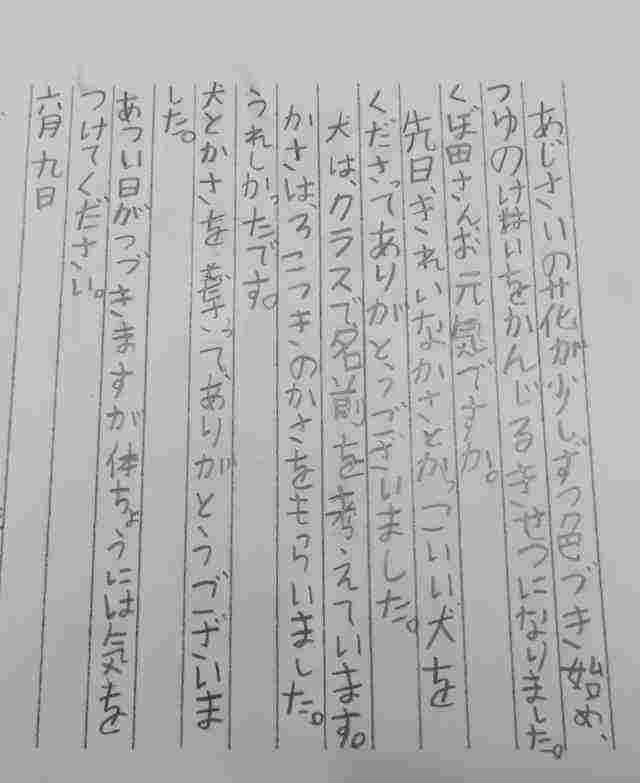 あじさいの花が少しずつ色づき始め、
つゆのけはいをかんじるきせつになりました。
くぼ田さんお元気ですか。
先日、きれいなかさとかっこいい犬を
くださってありがとうございました。
犬は、クラスで名前を考えています。
かさは、ろこつきのかさをもらいました。
うれしかったです。
犬とかさを売って、ありがとうございま
した。
あつい日がつづきますが体ちょうには気を
つけてください。
六月九日